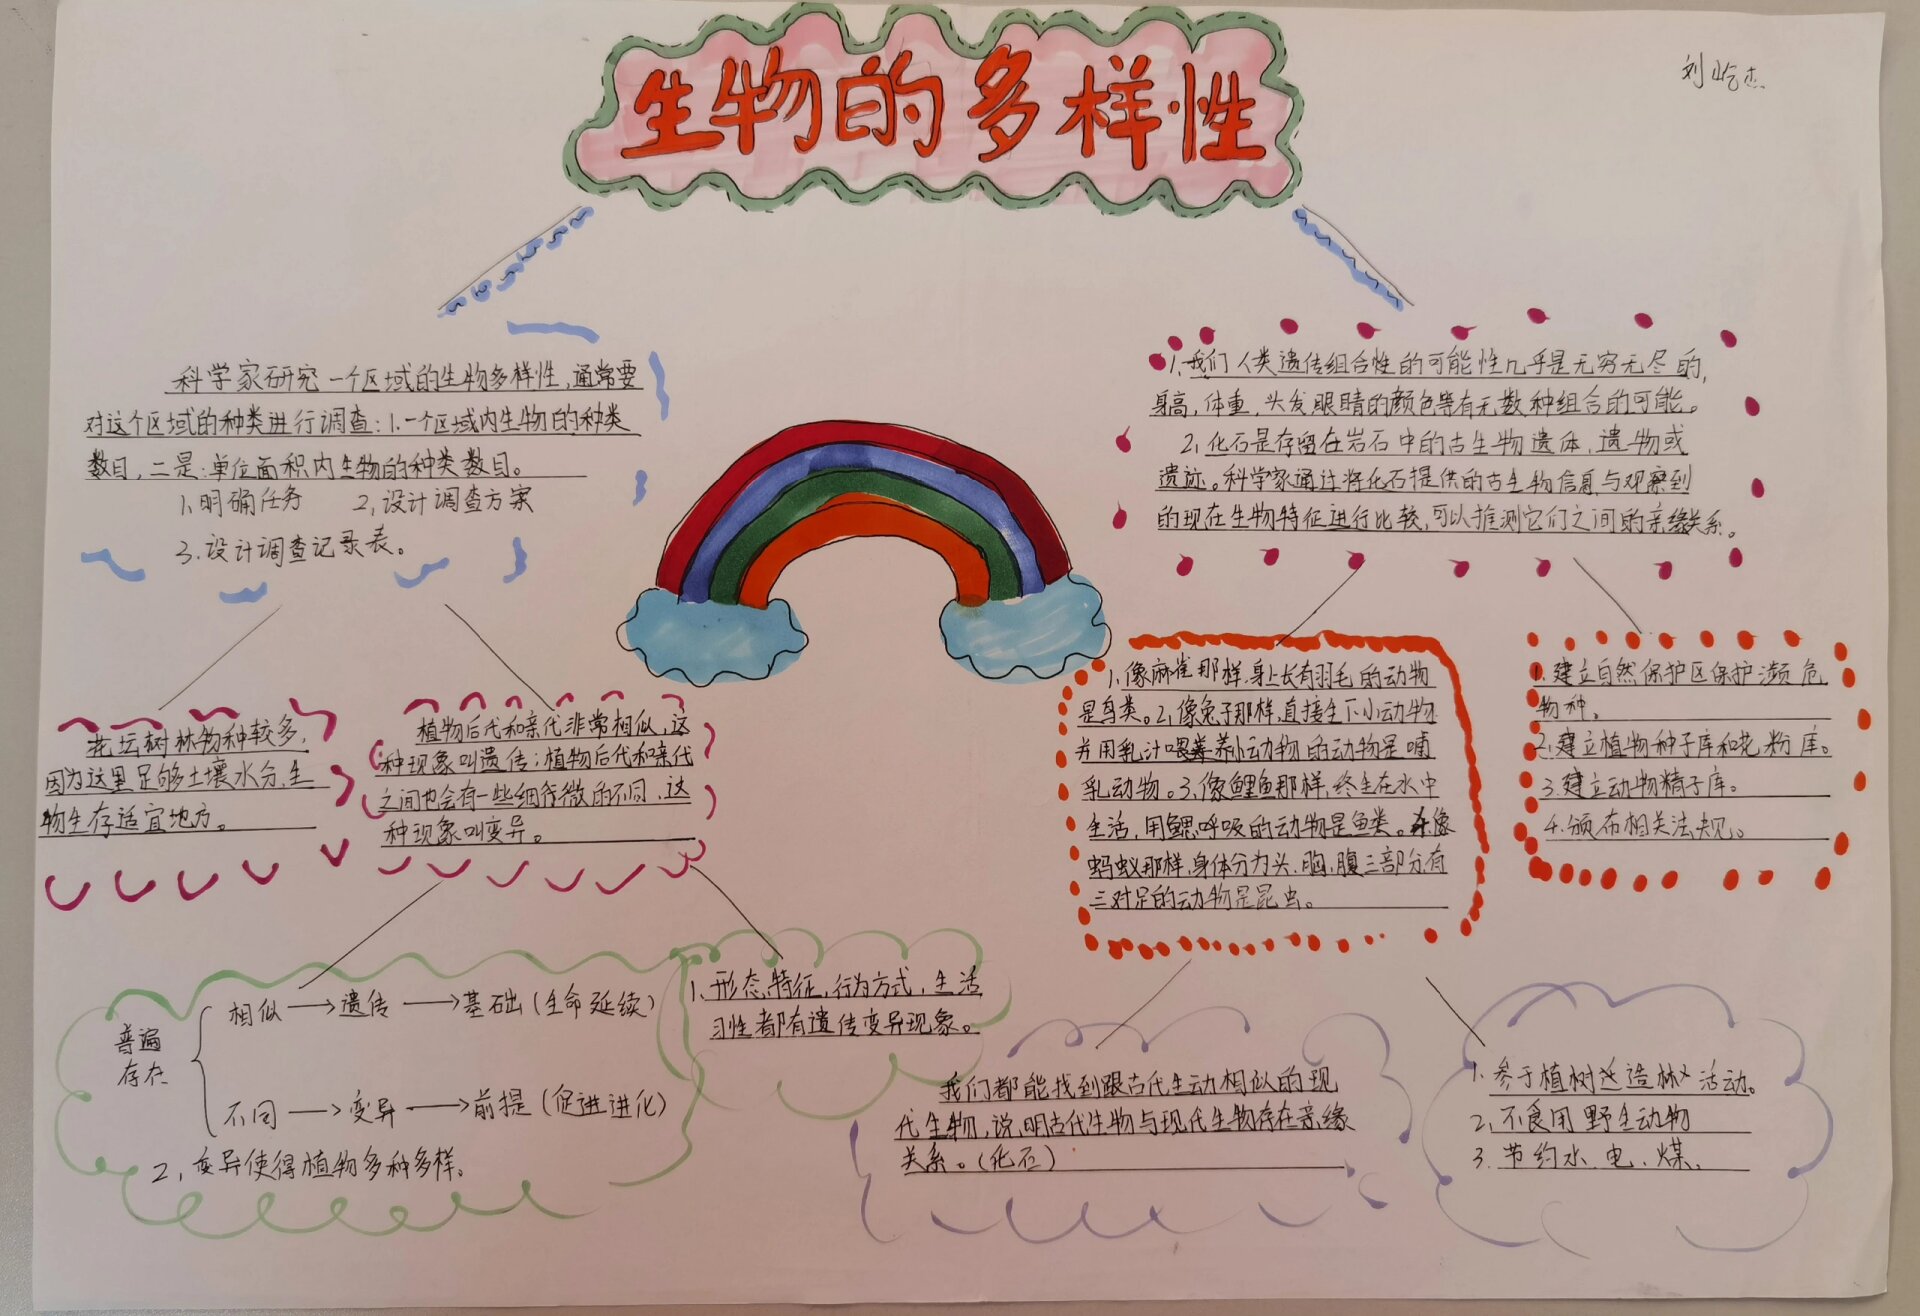 生物的多样性
刘晗杰
科学家研究一个区域的生物多样性,通常要
对这个区域的种类进行调查:1.一个区域内生物的种类
数目,二是:单位面积内生物的种类数目。
1.明确任务 2,设计调查方案
3.设计调查记录表。
1.我们人类遗传组合性的可能性几乎是无穷无尽的,
身高,体重,头发眼睛的颜色等有无数种组合的可能。
2,化石是存留在岩石中的古生物遗体,遗物或
遗迹。科学家通过将化石提供的古生物信息与观察到
的现在生物特征进行比较,可以推测它们之间的亲缘关系。
花坛树林物种较多,
因为这里足够土壤水分,生
物生存适宜地方。
植物后代和亲代非常相似,这
种现象叫遗传;植物后代和亲代
之间也会有一些细微的不同,这
种现象叫变异。
1.像麻雀那样,身上长有羽毛的动物
是鸟类。2,像兔子那样,直接生下小动物
并用乳汁喂养小动物的动物是哺
乳动物。3.像鲤鱼那样,终生在水中
生活,用鳃呼吸的动物是鱼类。4.像
蚂蚁那样,身体分为头,胸,腹三部分,有
三对足的动物是昆虫。
1.建立自然保护区保护濒危
物种。
2.建立植物种子库和花粉库。
3.建立动物精子库。
4.颁布相关法规。
普遍
存在
相似→遗传→基础(生命延续)
不同→变异→前提(促进进化)
2,变异使得植物多种多样。
1.形态,特征,行为方式,生活
习性都有遗传变异现象。
我们都能找到跟古代生动相似的现
代生物,说明古代生物与现代生物存在亲缘
关系。(化石)
1.参于植树造林活动。
2,不食用野生动物
3.节约水、电、煤.